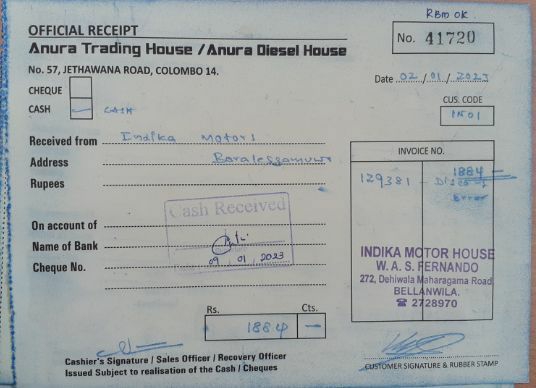 RBM OK
OFFICIAL RECEIPT
Anura Trading House / Anura Diesel House
No. 41720
No. 57, JETHAWANA ROAD, COLOMBO 14.
Date 02/01/2023
CHEQUE
CASH CASH
CUS. CODE
IN01
Received from Indika Motors
Address Boralesgamuwa
Rupees
INVOICE NO.
129381 - 1884
Error
Cash Received
09.01.2023
On account of
Name of Bank
Cheque No.
INDIKA MOTOR HOUSE
W. A. S. FERNANDO
272, Dehiwala Maharagama Road
BELLANWILA.
☎ 2728970
Rs. Cts.
1884 —
Cashier's Signature / Sales Officer / Recovery Officer
Issued Subject to realisation of the Cash / Cheques
CUSTOMER SIGNATURE & RUBBER STAMP